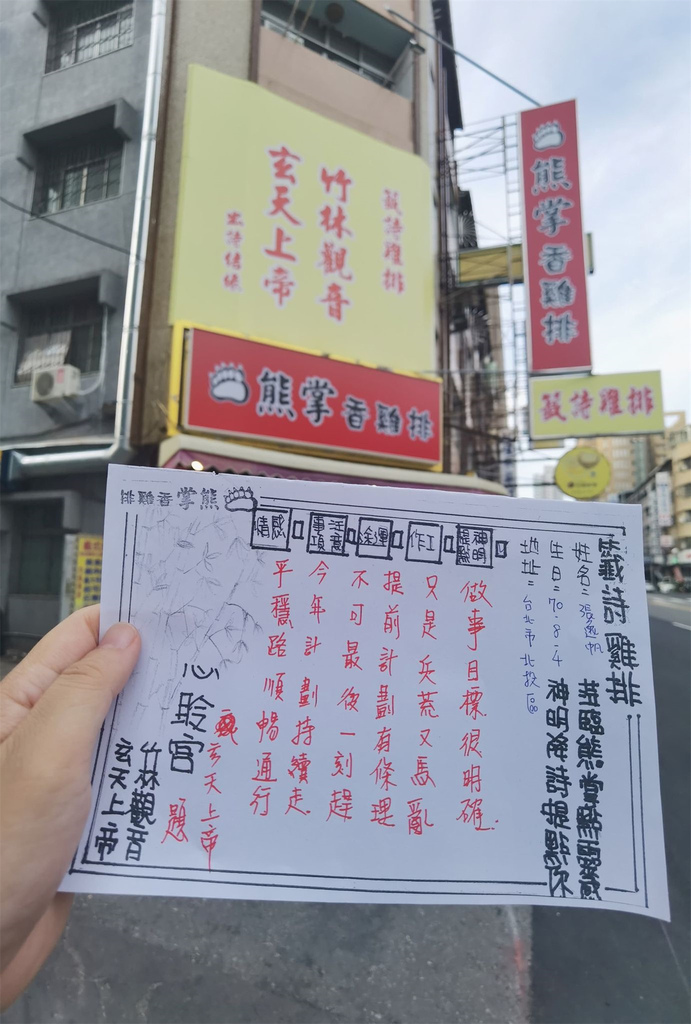 籤詩雞排
竹林觀音
玄天上帝
熊掌香雞排
熊掌香雞排
籤詩雞排
熊掌香雞排
籤詩雞排
姓名=張逸帆
生日=70.8.4
地址=台北市北投區
神明提點
工作
運途
注意事項
感情
做事目標很明確.
只是兵荒又馬亂
提前計劃有條理
不可最後一刻趕
今年計劃持續走
平穩路順暢通行
玄天上帝
題
心聆宮
竹林觀音
玄天上帝